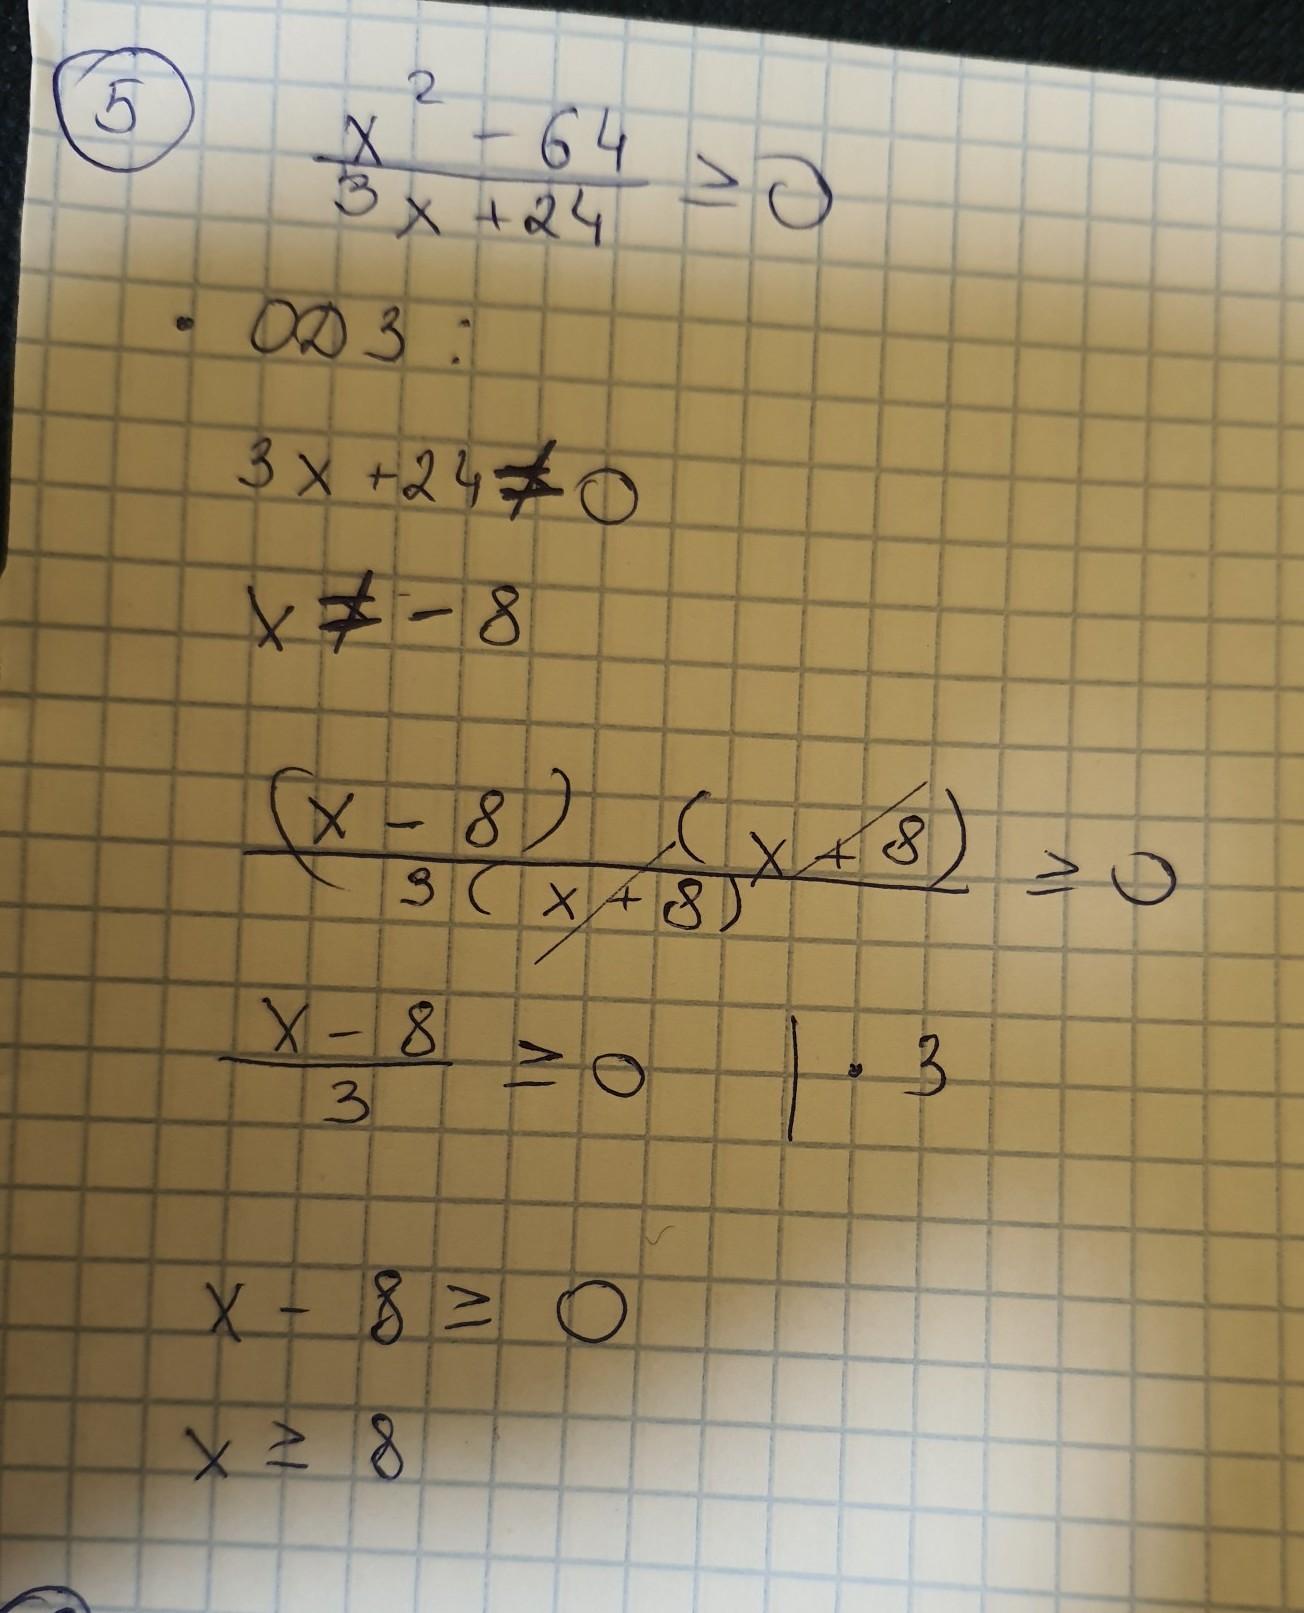 5
x² - 64
3x + 24 ≥ 0
• ОДЗ:
3x + 24 ≠ 0
x ≠ - 8
(x - 8) (x + 8)
3(x + 8) ≥ 0
x - 8
3 ≥ 0 | • 3
x - 8 ≥ 0
x ≥ 8